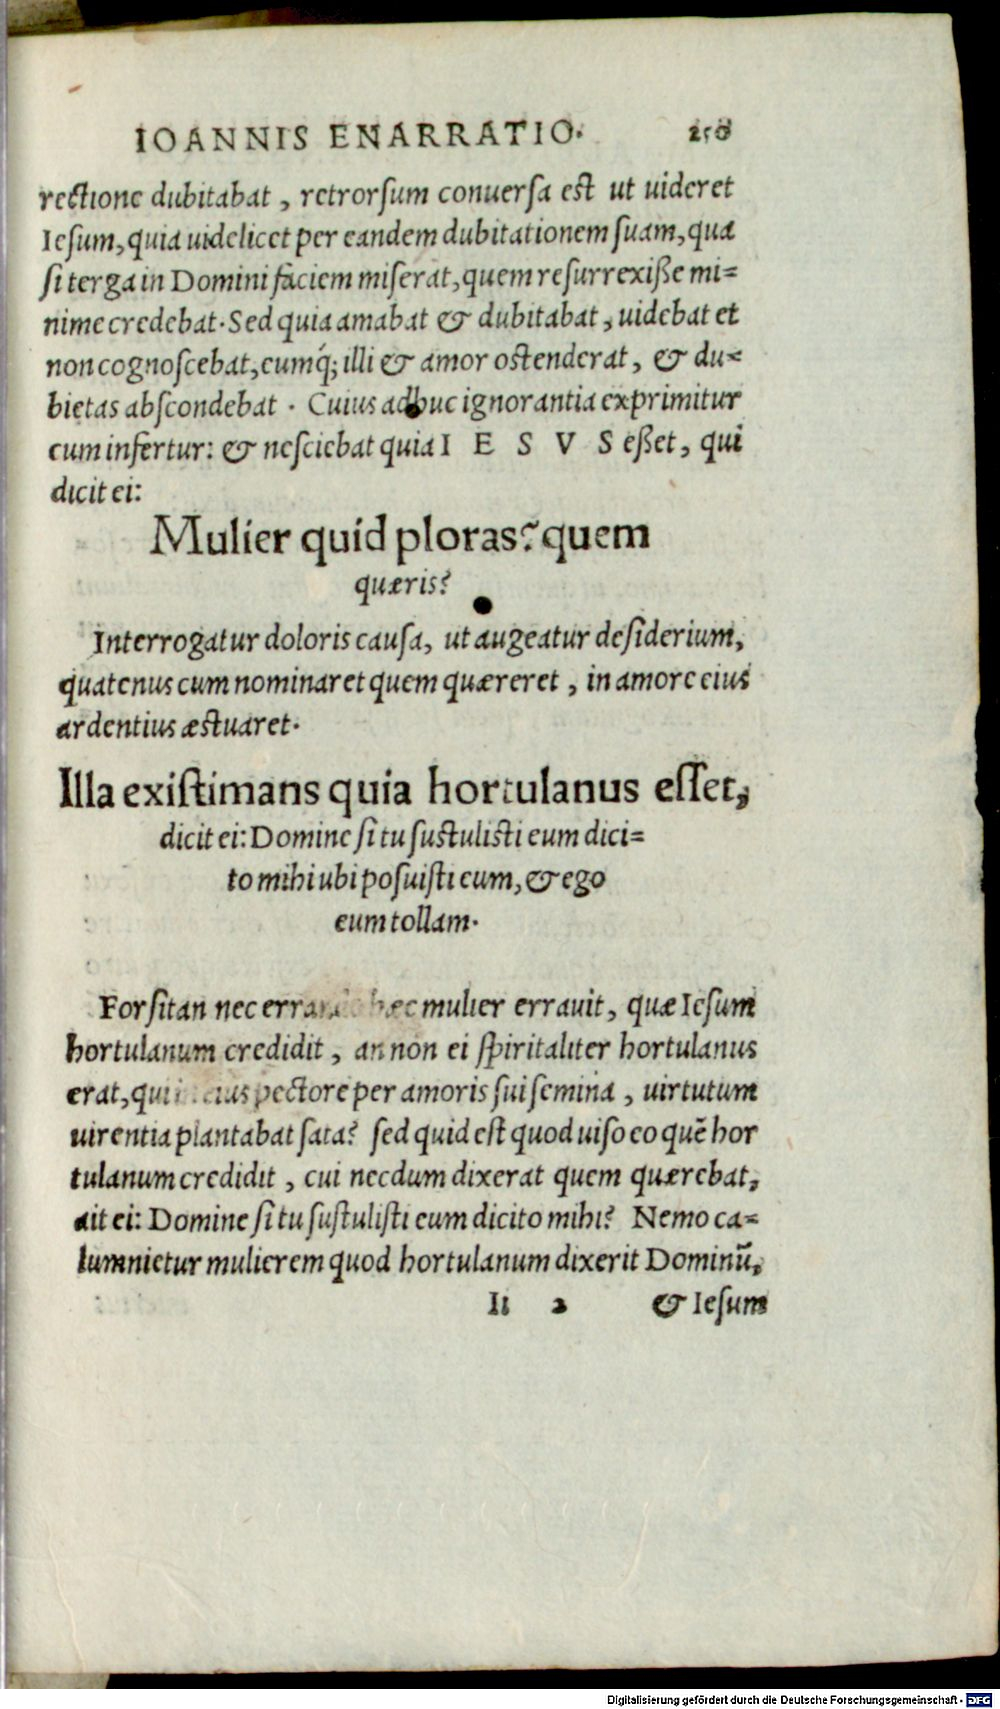 IOANNIS ENARRATIO. 250
rectione dubitabat, retrorsum conuersa est ut uideret
Iesum, quia uidelicet per eandem dubitationem suam, qua
si terga in Domini faciem miserat, quem resurrexiße mi=
nime credebat. Sed quia amabat & dubitabat, uidebat et
non cognoscebat, eumq́; illi & amor ostenderat, & du=
bietas abscondebat. Cuius adhuc ignorantia exprimitur
cum infertur: & nesciebat quia I E S V S eßet, qui
dicit ei:
Mulier quid ploras? quem
quæris?
Interrogatur doloris causa, ut augeatur desiderium,
quatenus cum nominaret quem quæreret, in amore eius
ardentius æstuaret.
Illa existimans quia hortulanus esset,
dicit ei: Domine si tu sustulisti eum dici=
to mihi ubi posuisti eum, & ego
eum tollam.
Forsitan nec errando hæc mulier errauit, quæ Iesum
hortulanum credidit, an non ei spiritaliter hortulanus
erat, qui eius pectore per amoris sui semina, uirtutum
uirentia plantabat sata? sed quid est quod uiso eo quē hor
tulanum credidit, cui necdum dixerat quem quærebat,
ait ei: Domine si tu sustulisti eum dicito mihi? Nemo ca=
lumnietur mulierem quod hortulanum dixerit Dominū,
Ii 2 & Iesum
Digitalisierung gefördert durch die Deutsche Forschungsgemeinschaft - DFG